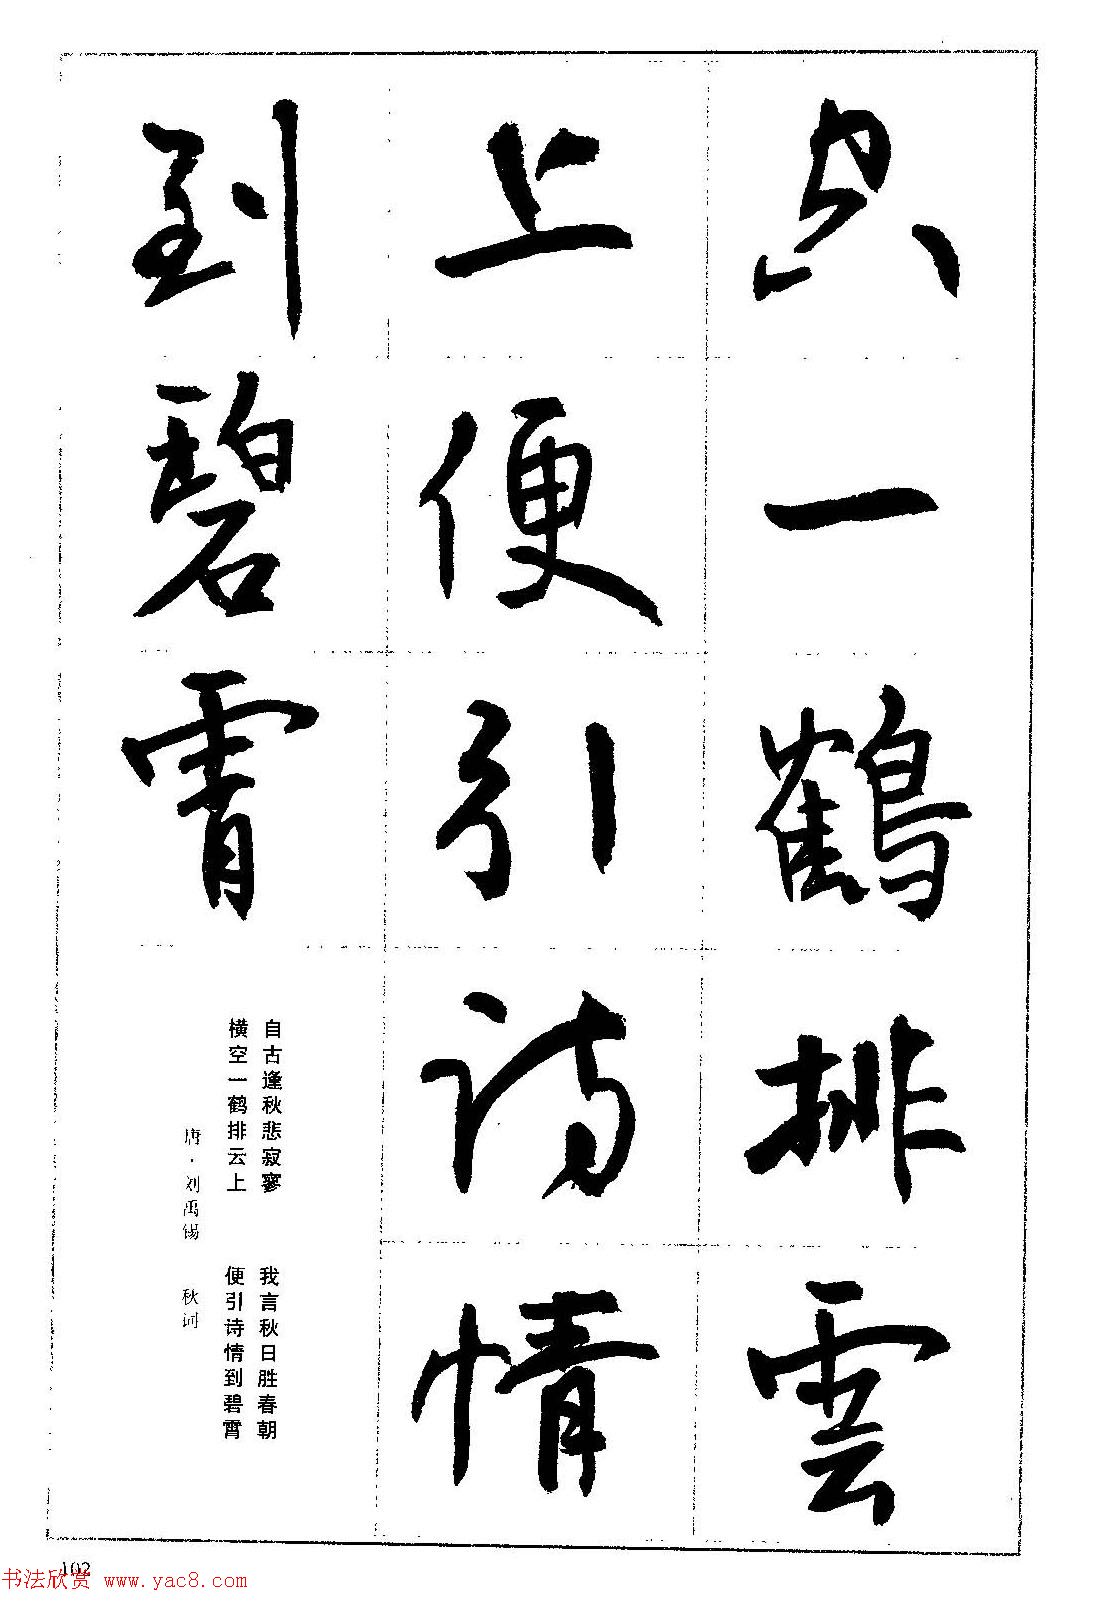 一鶴排雲
上便引詩情
到碧霄
自古逢秋悲寂寥 我言秋日胜春朝
横空一鹤排云上 便引诗情到碧霄
唐·刘禹锡 秋词
102
书法欣赏 www.yac8.com